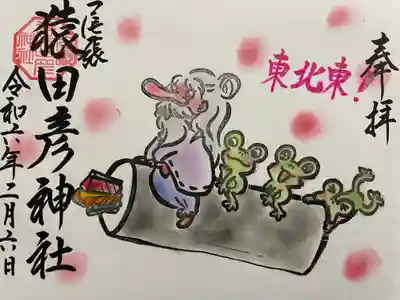 奉拝
東北東!
尾張
猿田彦神社
令和六年二月六日